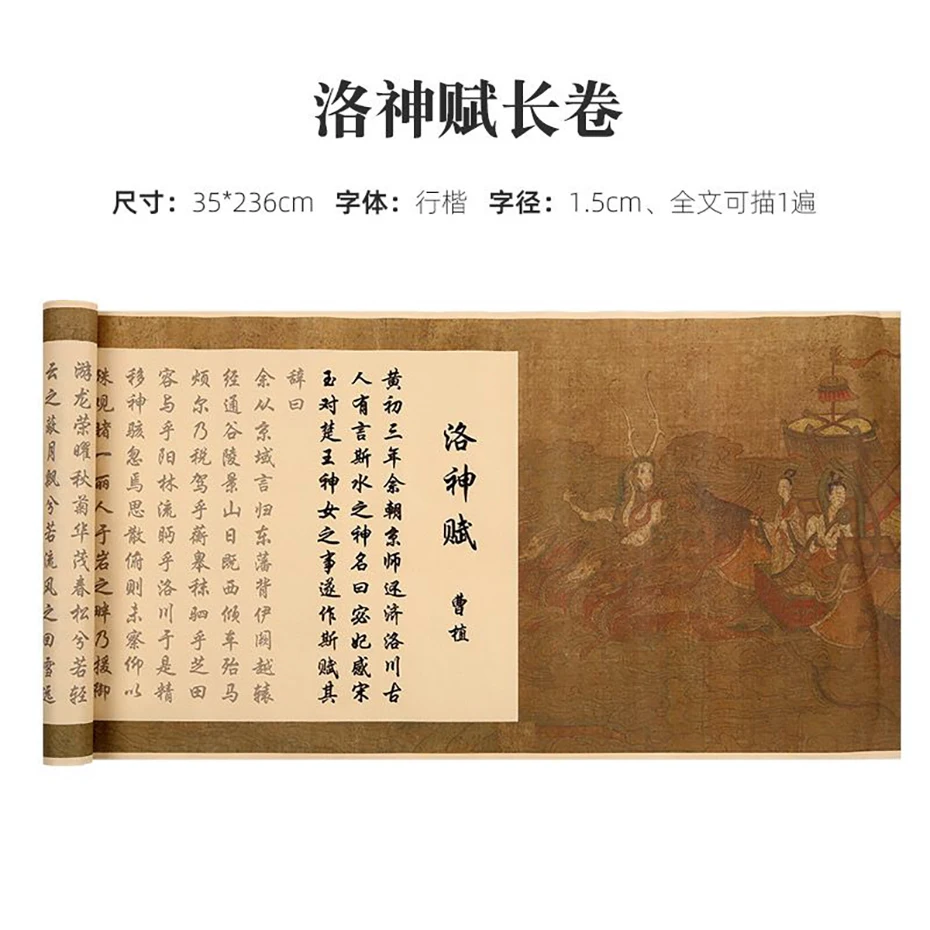 洛神赋长卷
尺寸：35*236cm 字体：行楷 字径：1.5cm、全文可描1遍
洛神赋
曹植
黄初三年余朝京师还济洛川古
人有言斯水之神名曰宓妃感宋
玉对楚王神女之事遂作斯赋其
辞曰
余从京域言归东藩背伊阙越辕
经通谷陵景山日既西倾车殆马
烦尔乃税驾乎蘅皋秣驷乎芝田
容与乎阳林流眄乎洛川于是精
移神骇忽焉思散俯则未察仰以
殊观睹一丽人于岩之畔乃援御
游龙荣曜秋菊华茂春松兮若轻
云之蔽月飘兮若流风之回雪远